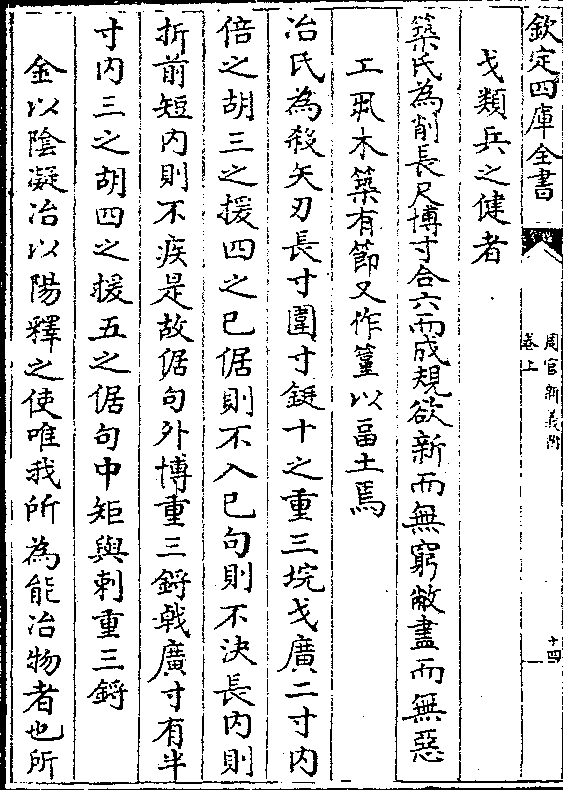 欽定四庫全書
周官新義附
卷上
十四
戈類兵之健者
築氏為削長尺博寸合六而成規欲新而無窮敝盡而無惡
工丮木築有節又作以畐土焉
冶氏為殺矢刃長寸圍寸鋌十之重三垸戈廣二寸内
倍之胡三之援四之已倨則不入已句則不決長内則
折前短内則不疾是故倨句外博重三鋝戟廣寸有半
寸内三之胡四之援五之倨句中矩與刺重三鋝
金以陰凝冶以陽釋之使唯我所為能冶物者也所